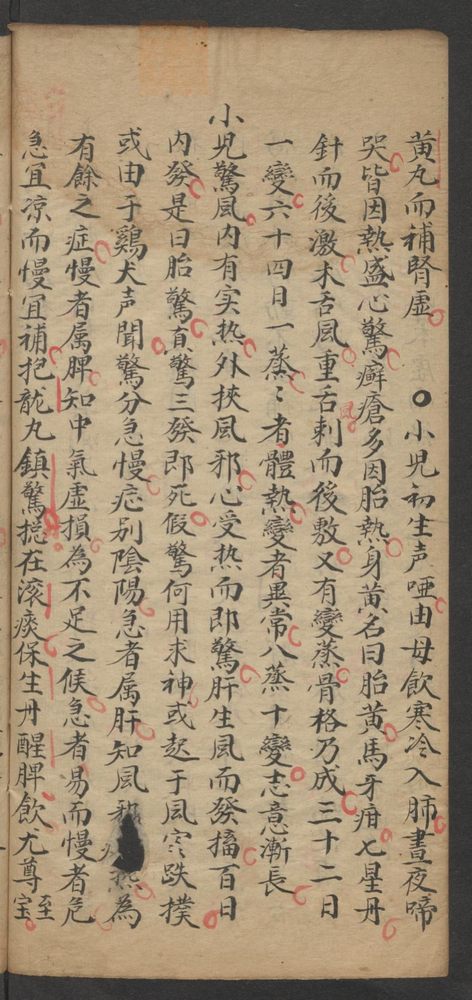 黄丸而補腎虛 〇小児初生声啞由母飲寒冷入肺晝夜啼
哭皆因熱盛心驚癬瘡多因胎熱身黄名曰胎黄馬牙疳七星丹
針而後激木舌風重舌刺而後敷又有變蒸骨格乃成三十二日
一變六十四日一蒸〻者體熱變者異常八蒸十變志意漸長
小児驚風内有实热外挾風邪心受热而即驚肝生風而發搐百日
内發是曰胎驚真驚三發即死假驚何用求神或起于風寒跌撲
或由于鷄犬声聞驚分急慢症别陰陽急者属肝知風邪热為
有餘之症慢者属脾知中氣虛損為不足之候急者易而慢者危
急宜凉而慢宜補抱龍丸鎮驚搃在滚痰保生丹醒脾飲尤尊至宝